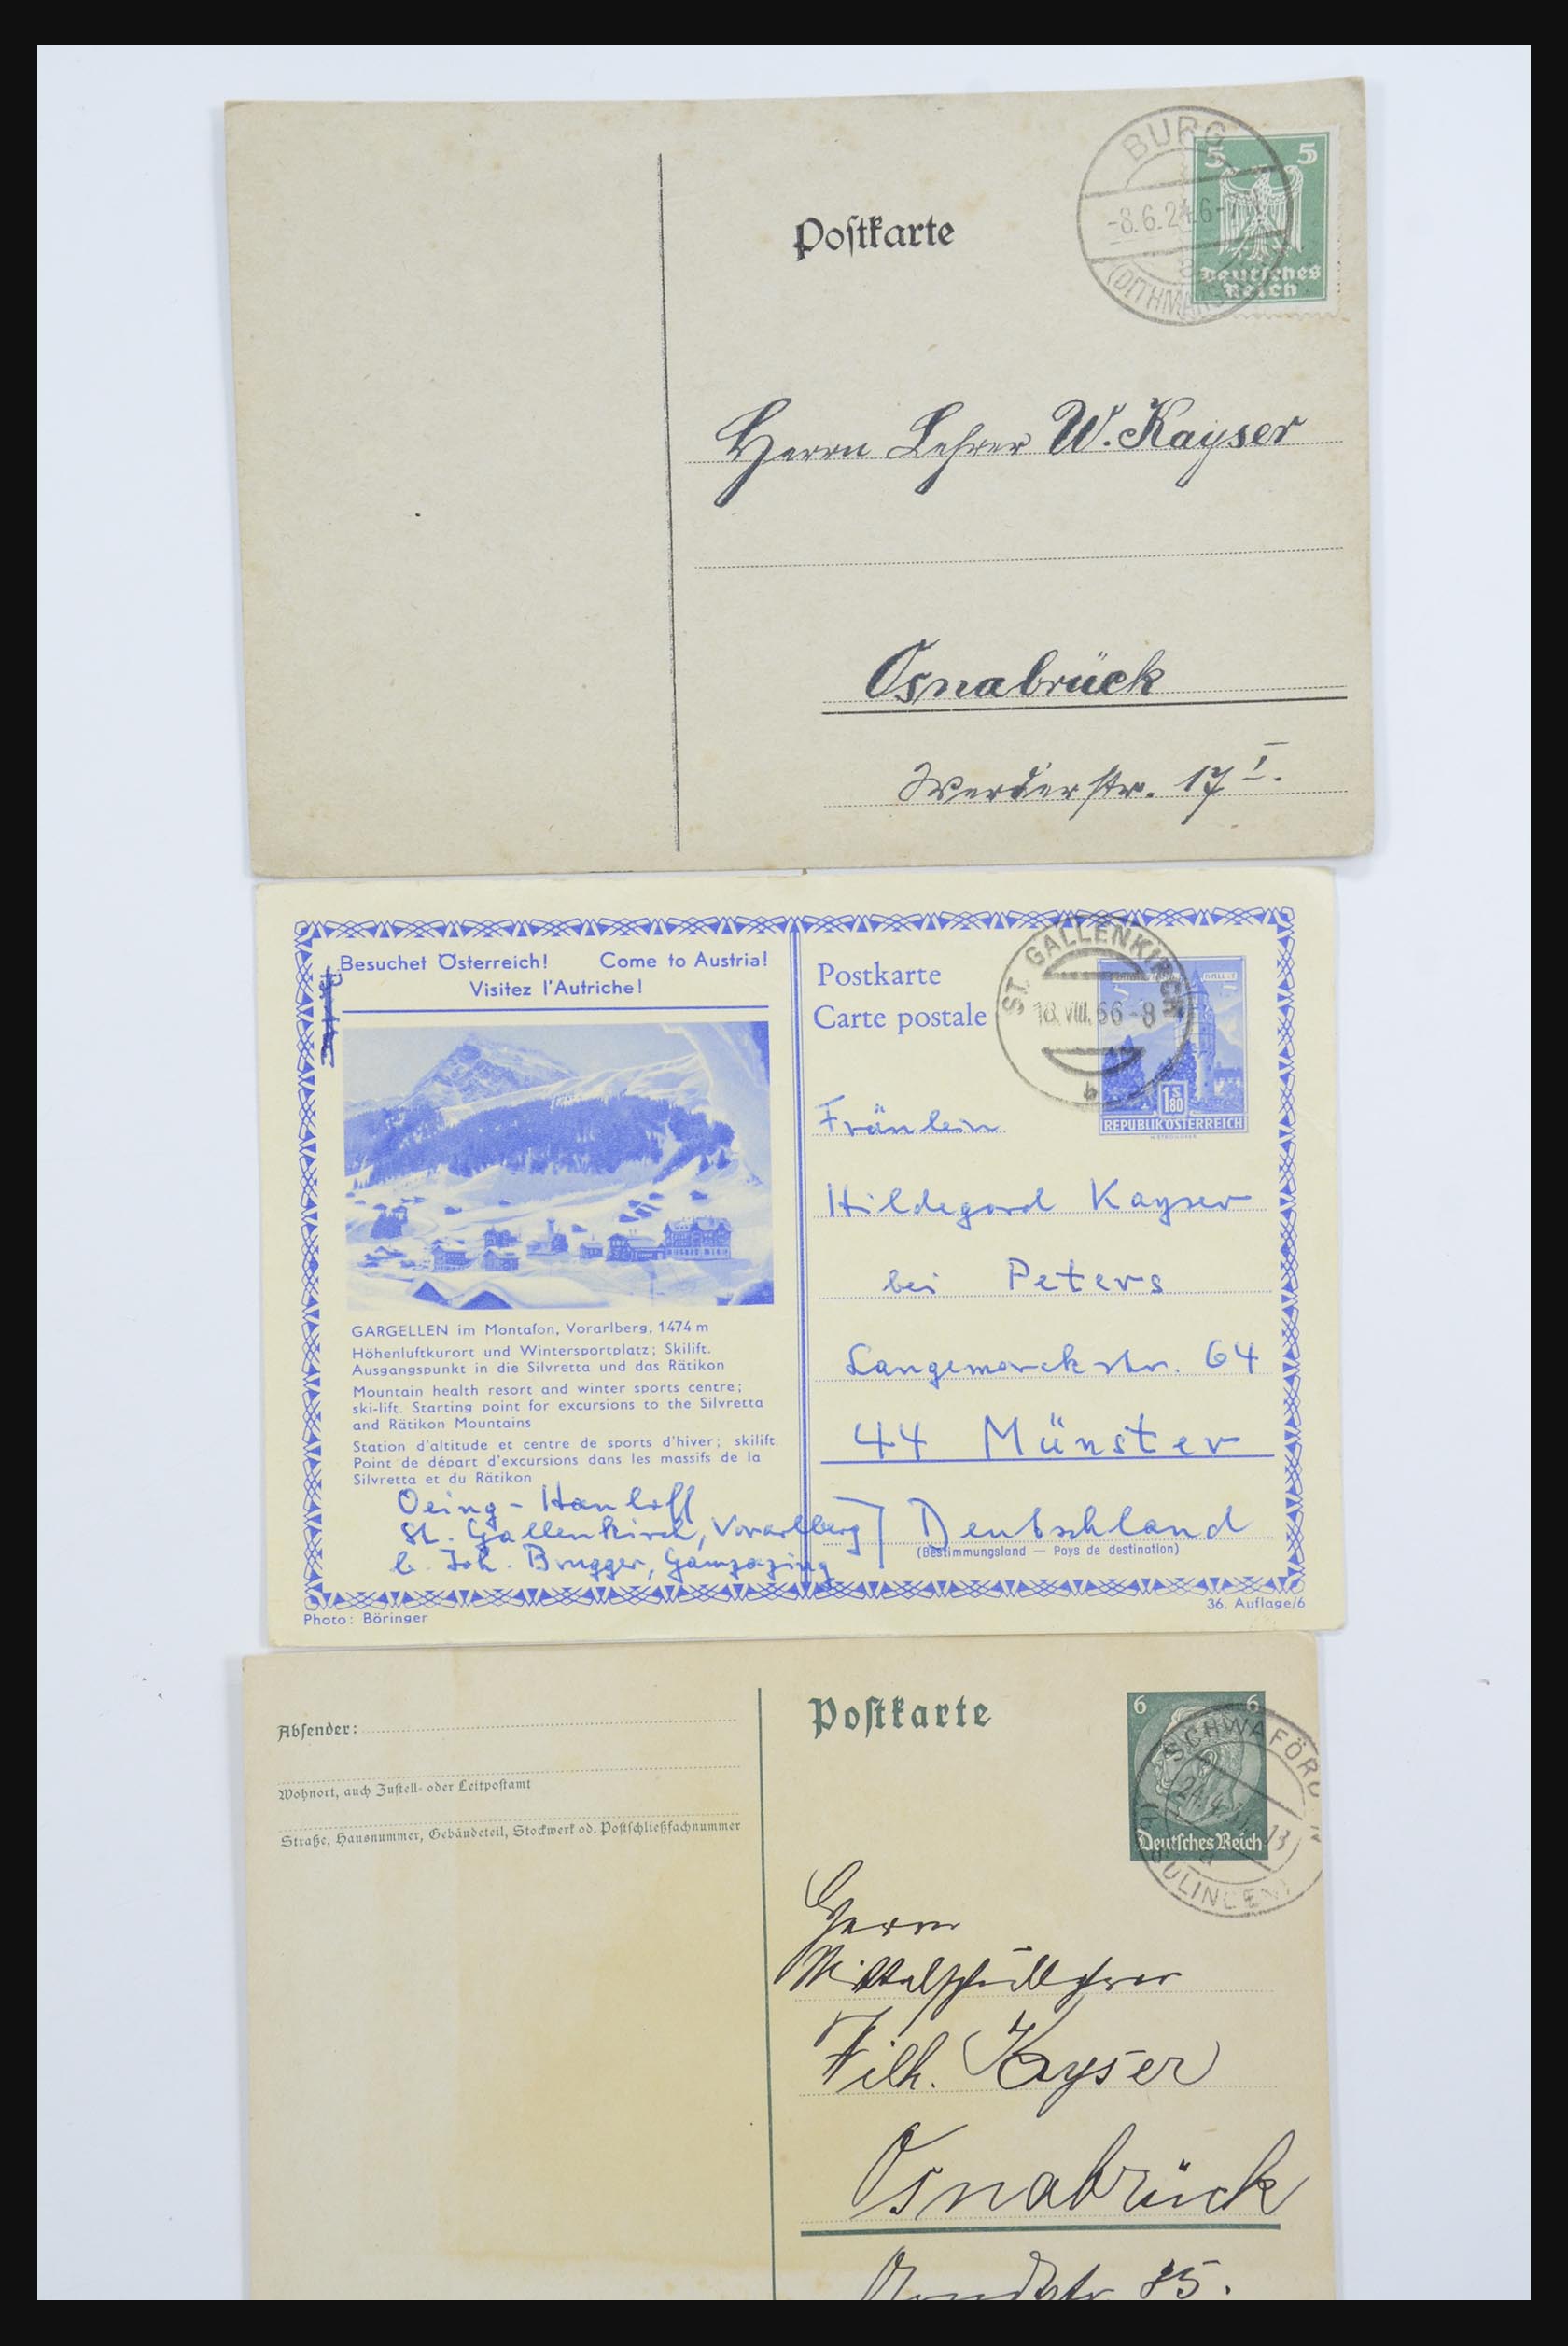 Postkarte
BURG
-8.6.24.6-7
(DITHMARSCH)
5 5
Deutsches
Reich
Herrn Lehrer W. Kayser
Osnabrück
Werderstr. 17 I.
Besuchet Österreich! Come to Austria!
Visitez l'Autriche!
Postkarte
Carte postale
ST. GALLENKIRCH
18.VIII.66-8
b
1 S 80
REPUBLIK ÖSTERREICH
GARGELLEN im Montafon, Vorarlberg, 1474 m
Höhenluftkurort und Wintersportplatz; Skilift.
Ausgangspunkt in die Silvretta und das Rätikon
Mountain health resort and winter sports centre;
ski-lift. Starting point for excursions to the Silvretta
and Rätikon Mountains
Station d'altitude et centre de sports d'hiver; skilift.
Point de départ d'excursions dans les massifs de la
Silvretta et du Rätikon
Oeing-Hanhoff
St. Gallenkirch, Vorarlberg
b. Joh. Brugger, Gampazing
Fräulein
Hildegard Kayser
bei Peters
Langemarckstr. 64
44 Münster
Deutschland
(Bestimmungsland — Pays de destination)
Photo: Böringer
36. Auflage/6
Absender:
Wohnort, auch Zustell- oder Leitpostamt
Straße, Hausnummer, Gebäudeteil, Stockwerk od. Postschließfachnummer
Postkarte
6 6
Deutsches Reich
SCHWAFÖRDEN
13
SULINGEN)
Herrn
Mittelschullehrer
Wilh. Kayser
Osnabrück
85.